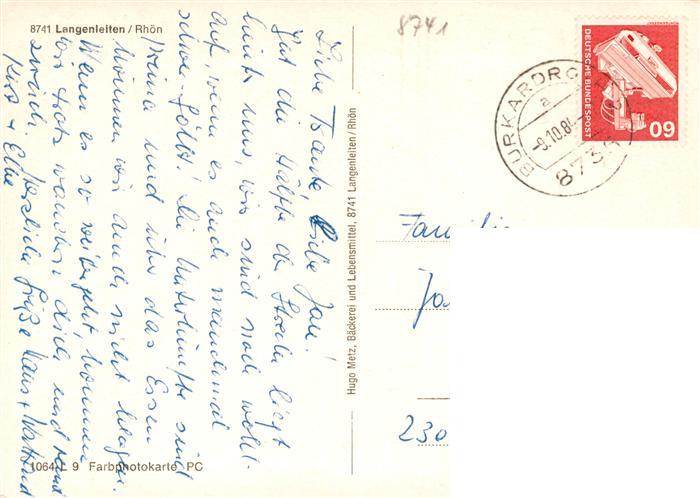 8741
8741 Langenleiten / Rhön
Liebe Tante, Liebe Jan!
Gut die Hälfte der Strecke liegt
hinter uns, wir sind noch wohl-
auf, wenn es auch manchmal
schwer fällt! Die Unterkünfte sind
prima und über das Essen
können wir auch nicht klagen.
Wenn es so weitergeht, kommen
wir trotz wandern dick und rund
zurück. Herzliche Grüße Hans +
Kurt + Elke
1064 L 9 Farbphotokarte PC
Hugo Metz, Bäckerei und Lebensmittel, 8741 Langenleiten/Rhön
BURKARDRO
a
-9.10.8
873
DEUTSCHE BUNDESPOST
60
Famili
Ja
230